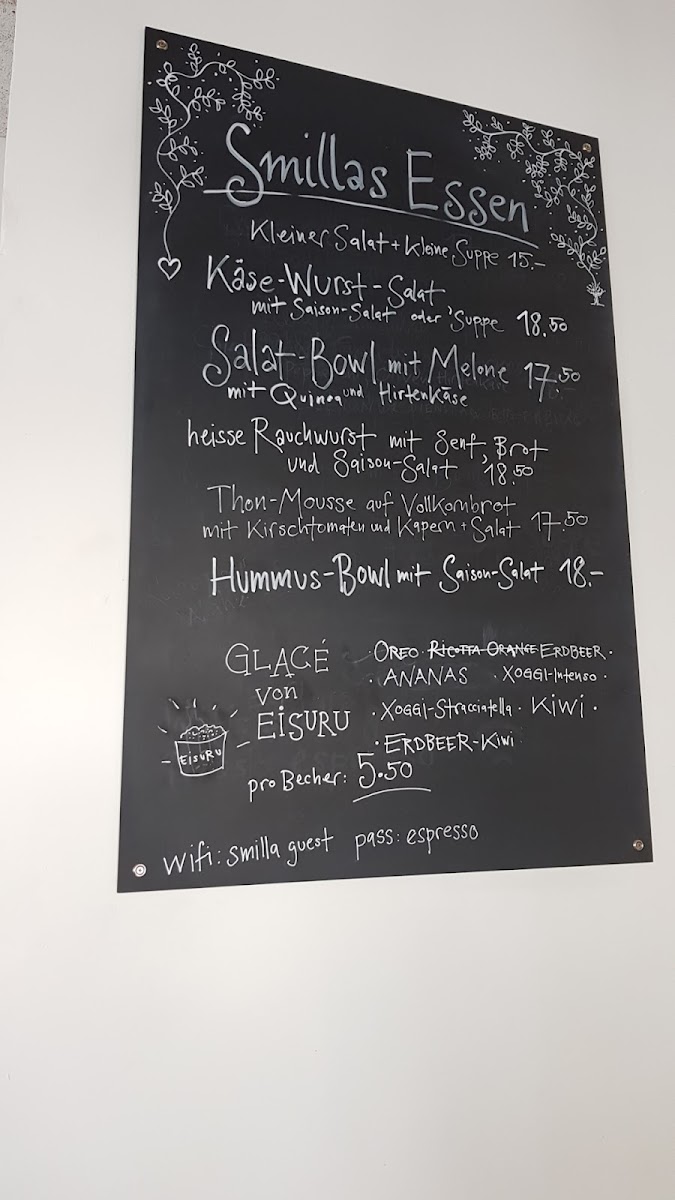 Smillas Essen
Kleiner Salat + Kleine Suppe 15.-
Käse-Wurst-Salat
mit Saison-Salat oder Suppe 18.50
Salat-Bowl mit Melone 17.50
mit Quinoa und Hirtenkäse
heisse Rauchwurst mit Senf, Brot
und Saison-Salat 18.50
Thon-Mousse auf Vollkornbrot
mit Kirschtomaten und Kapern + Salat 17.50
Hummus-Bowl mit Saison-Salat 18.-
GLACÉ
von
EISURU
OREO · RICOTTA ORANGE ERDBEER ·
· ANANAS · XOGGI-Intenso ·
· XOGGI-Stracciatella · KIWI ·
· ERDBEER-KIWI
EISURU
pro Becher: 5.50
wifi: smilla guest pass: espresso